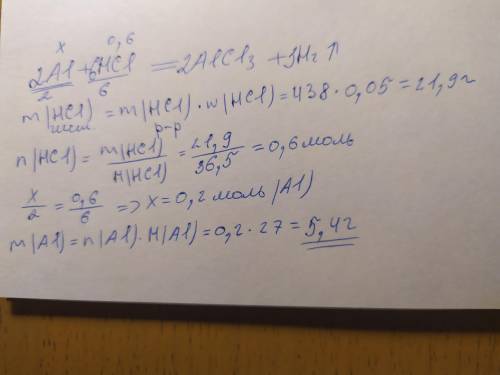 x 0,6
2Al + 6HCl = 2AlCl3 + 3H2 ↑
2 6
m(HCl) = m(HCl) · w(HCl) = 438 · 0,05 = 21,9г
р-р
n(HCl) = m(HCl) / M(HCl) = 21,9 / 36,5 = 0,6 моль
x/2 = 0,6/6 => x = 0,2 моль (Al)
m(Al) = n(Al) · M(Al) = 0,2 · 27 = 5,4г